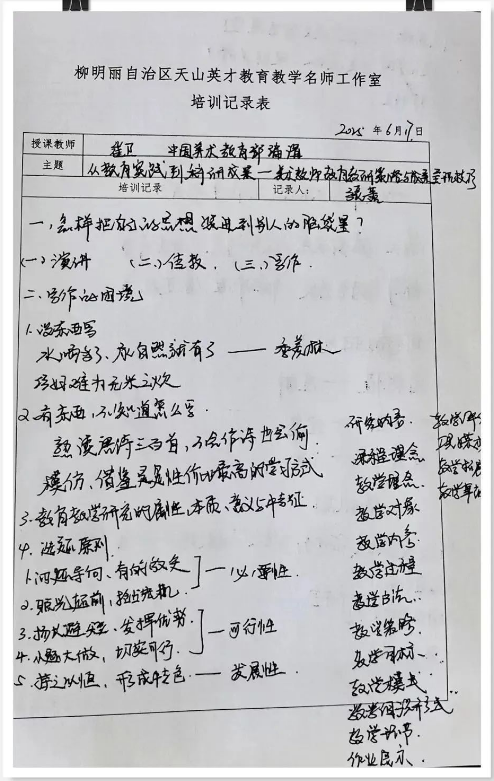 柳明丽自治区天山英才教育教学名师工作室
培训记录表
2025 年 6月17日
授课教师 崔卫 中国美术教育部编辑
主题 从教育实践到科研成果一美术教师教育教研实践
培训记录 记录人：
一、怎样把自己的思想装进到别人的脑袋里？
(一)演讲 (二)传教 (三)写作
二、写作的困境
1.没东西写
水喝多了、尿自然就有了 —— 季羡林
巧妇难为无米之炊
2.有东西，不知道怎么写
熟读唐诗三百首，不会作诗也会偷
模仿、借鉴是性价比最高的学习方式
3.教育教学研究的属性、本质、意义与特征
4.选题原则
1.问题导向、有的放矢
— 必要性
2.眼光超前，抢占先机
3.扬长避短、发挥优势
— 可行性
4.小题大做，切实可行
5.持之以恒，形成特色 —— 发展性
研究内容
课程理念
教学理念
教学对象
教学内容
教学过程
教学方法
教学策略
教学目标
教学模式
教学组织形式
教学环节
作业展示